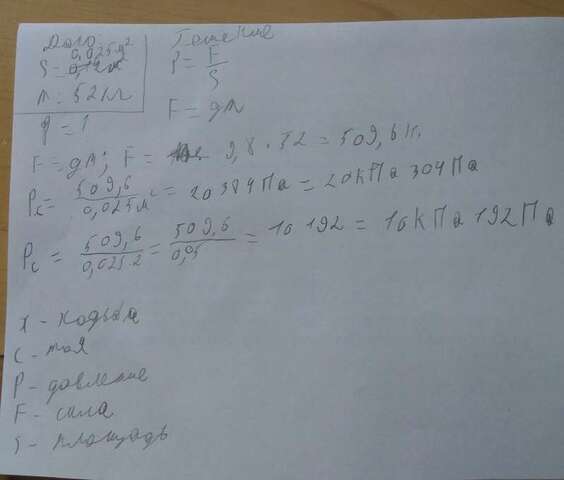 Дано
Решение
S = 0,025м²
P = F/S
m: 52кг
P = ?
F = gm
F = gm; F = 9,8 · 52 = 509,6 Н.
Pс = 509,6/0,025м = 20384Па = 20кПа 304Па
Pс = 509,6/0,025·2 = 509,6/0,05 = 10 192 = 10кПа 192Па
х - ходьба
с - тоя
P - давление
F - сила
S - площадь